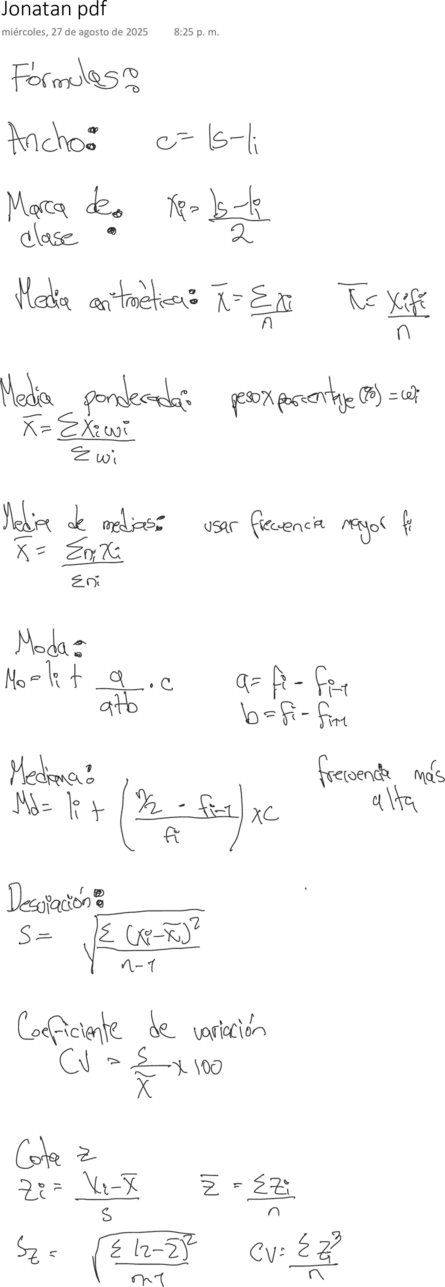 Jonatan pdf
miércoles, 27 de agosto de 2025 8:25 p. m.
Fórmulas:
Ancho: c = ls - li
Marca de clase : xi = ls - li / 2
Media aritmètica: x̄ = Σxi / n x̄ = xifi / n
Media ponderada: peso x porcentaje (%) = wi
x̄ = Σxiwi / Σwi
Media de medias: usar frecuencia mayor fi
x̄ = Σni xi / Σni
Moda:
Mo = li + a / a+b · c a = fi - fi-1
b = fi - fi+1
Mediana: frecuencia más alta
Md = li + (n/2 - fi-1 / fi) x c
Desviación:
S = √ Σ (xi - x̄)² / n-1
Coeficiente de variación
CV = S / x̄ x 100
Cota z
zi = xi - x̄ / s z̄ = Σzi / n
Sz = √ Σ (z - z̄)² / n-1 CV = Σ zi³ / n